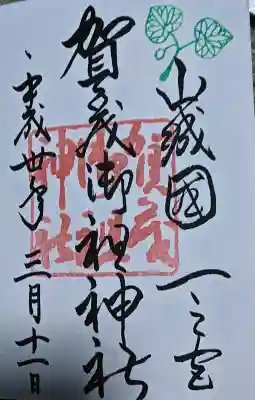 山城國一之宮
賀茂御祖神社
平成卅年三月十一日
賀茂御祖神社